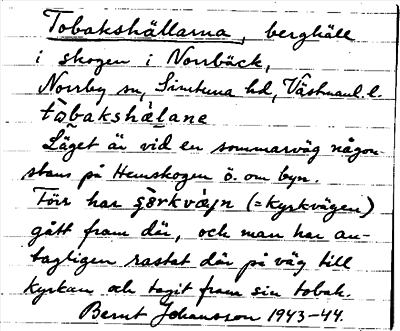 Tobakshällarna, berghäll
i skogen i Norrbäck,
Norrby sn, Simtuna hd, Västmanl. l.
tòbakshä̀lane
Läget är vid en sommarväg någon-
stans på Hemskogen ö. om byn.
Förr har kyrkvägen (= Kyrkvägen)
gått fram där, och man har an-
tagligen rastat där på väg till
kyrkan och tagit fram sin tobak.
Bernt Johansson 1943-44.